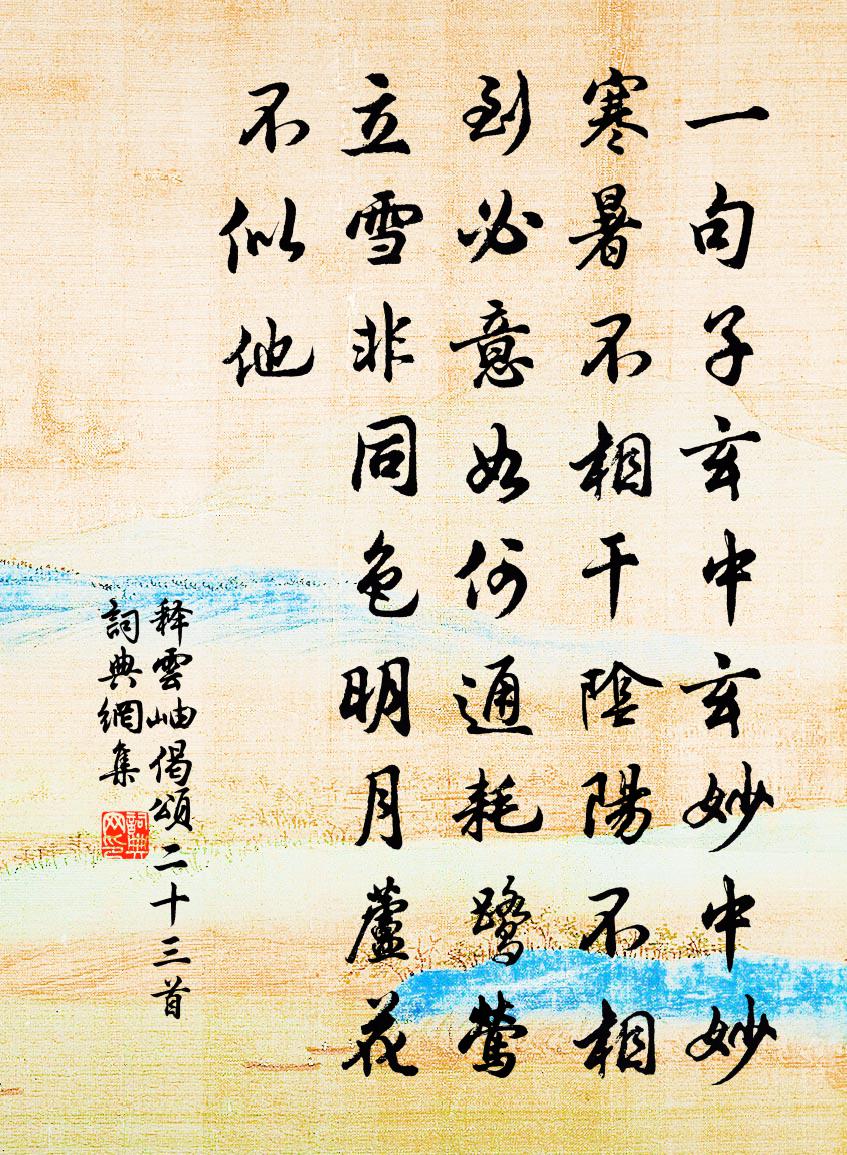 一句子玄中玄妙中妙
寒暑不相干陰陽不相
到必意如何通耗鷺鶯
立雪非同色明月蘆花
不似他
釋雲岫偈頌二十三首
詞典網集
詞典
网印